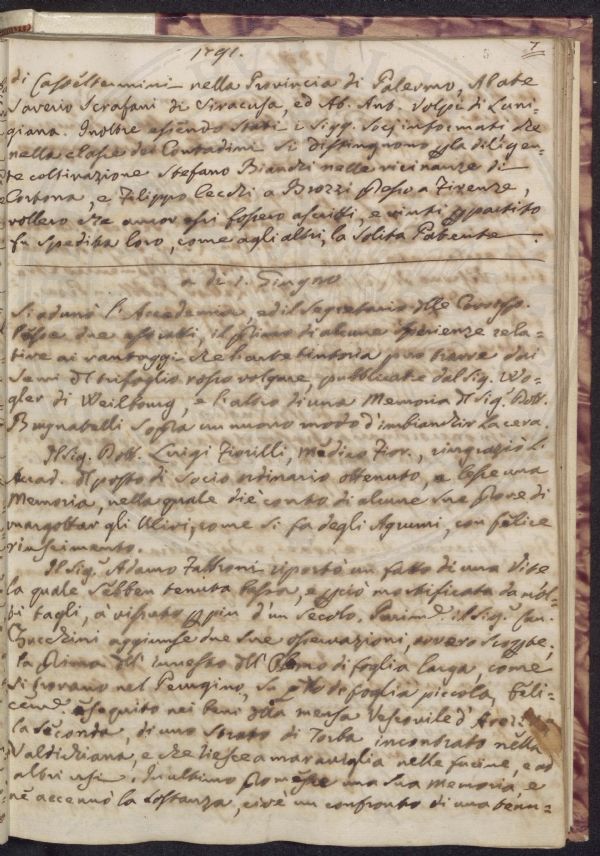 1791.
7
di Casteltermini nella Provincia di Palermo, Abate
Saverio Scrafani di Siracusa, ed Ab. Ant. Volpi di Luni-
giana. Inoltre essendo stati i Sigg. Socj informati che
nella classe dei Contadini si distinguono p la diligen-
te coltivazione Stefano Bianchi nelle vicinanze di
Cortona, e Filippo Cecchi a Brozzi presso a Firenze,
vollero che ancor essi fossero ascritti, e vinti p partito
fu spedita loro, come agli altri, la solita Patente.
a dì 1. Giugno
Si adunò l'Accademia, ed il Segretario delle Corrisp.
lesse due estratti, il primo di alcune sperienze rela-
tive ai vantaggi che l'arte tintoria può trarre dai
semi del trifoglio rosso volgare, pubblicate dal Sig. Vo-
gler di Weilbourg, e l'altro di una Memoria del Sig. Dott.
Brugnatelli sopra un nuovo modo d'imbianchir la cera.
Il Sig. Dott. Luigi Fiorilli, Medico Fior., ringraziò l'
Accad. del posto di Socio ordinario ottenuto, e lesse una
Memoria, nella quale diè conto di alcune sue prove di
margottar gli Ulivi, come si fa degli Agrumi, con felice
riuscimento.
Il Sig. Adamo Fabbroni riportò un fatto di una Vite
la quale sebben tenuta bassa, e perciò mortificata da mol-
ti tagli, à vissuto p più d'un secolo. Parim. il Sig. Can.
Zucchini aggiunse due sue osservazioni, ovvero scoperte,
la prima dell' innesto dell' Olmo di foglia larga, come
si trovano nel Perugino, su quello di foglia piccola, feli-
cem. eseguito nei beni della mensa Vescovile d'Arezzo
la seconda, di uno strato di Torba incontrato nella
Valdichiana, e che riesce a maraviglia nelle fucine, e ad
altri usi. In ultimo promesse una sua Memoria, e
ne accennò la sostanza, cioè un confronto di una tenu-